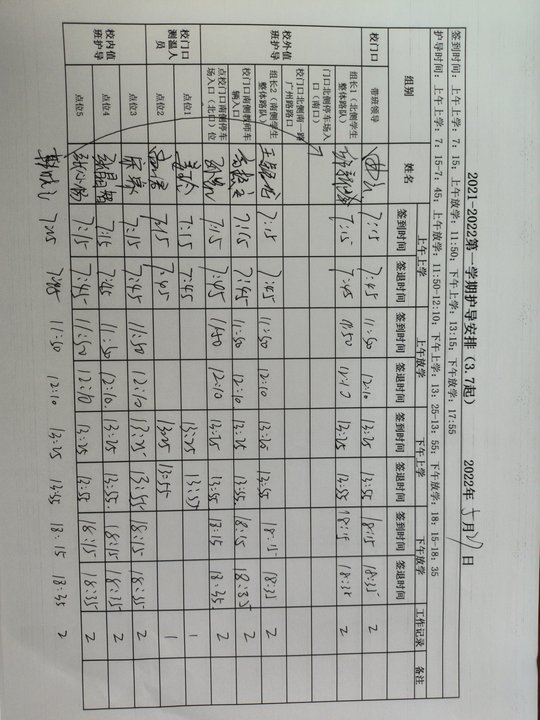 2021-2022第一学期护导安排（3.7起） 2022年 月 日
签到时间：上午上学：7：15；上午放学：11:50；下午上学：13:15；下午放学：17:55
护导时间：上午上学：7：15-7：45；上午放学：11:50-12:10；下午上学：13：25-13：55，下午放学：18：15-18：35
组别 姓名 上午上学 上午放学 下午上学 下午放学 工作记录 备注
签到时间 签退时间 签到时间 签退时间 签到时间 签退时间 签到时间 签退时间
校门口 带班领导 7:15 7:45 11:50 12:10 13:25 13:55 18:15 18:35 2
校外值班护导 组长1（北侧学生整体路队） 7:15 7:45 11:50 12:10 13:25 13:55 18:15 18:35 2
门口北侧停车场入口（南口）
校门口北侧南一路广州路路口
组长2（南侧学生整体路队） 7:15 7:45 11:50 12:10 13:25 13:55 18:15 18:35 2
校门口南侧教师车辆入口 7:15 7:45 11:50 12:10 13:25 13:55 18:15 18:35 2
点校门口南侧停车场入口（北口）位 7:15 7:45 11:50 12:10 13:25 13:55 18:15 18:35 2
校门口测温人员 点位1 7:15 7:45 13:25 13:55 1
点位2 7:15 7:45 13:25 13:55 1
校内值班护导 点位3 7:15 7:45 11:50 12:10 13:25 13:55 18:15 18:35 2
点位4 7:15 7:45 11:50 12:10 13:25 13:55 18:15 18:35 2
点位5 7:15 7:45 11:50 12:10 13:25 13:55 18:15 18:35 2
7:15 7:45 11:50 12:10 13:25 13:55 18:15 18:35 2